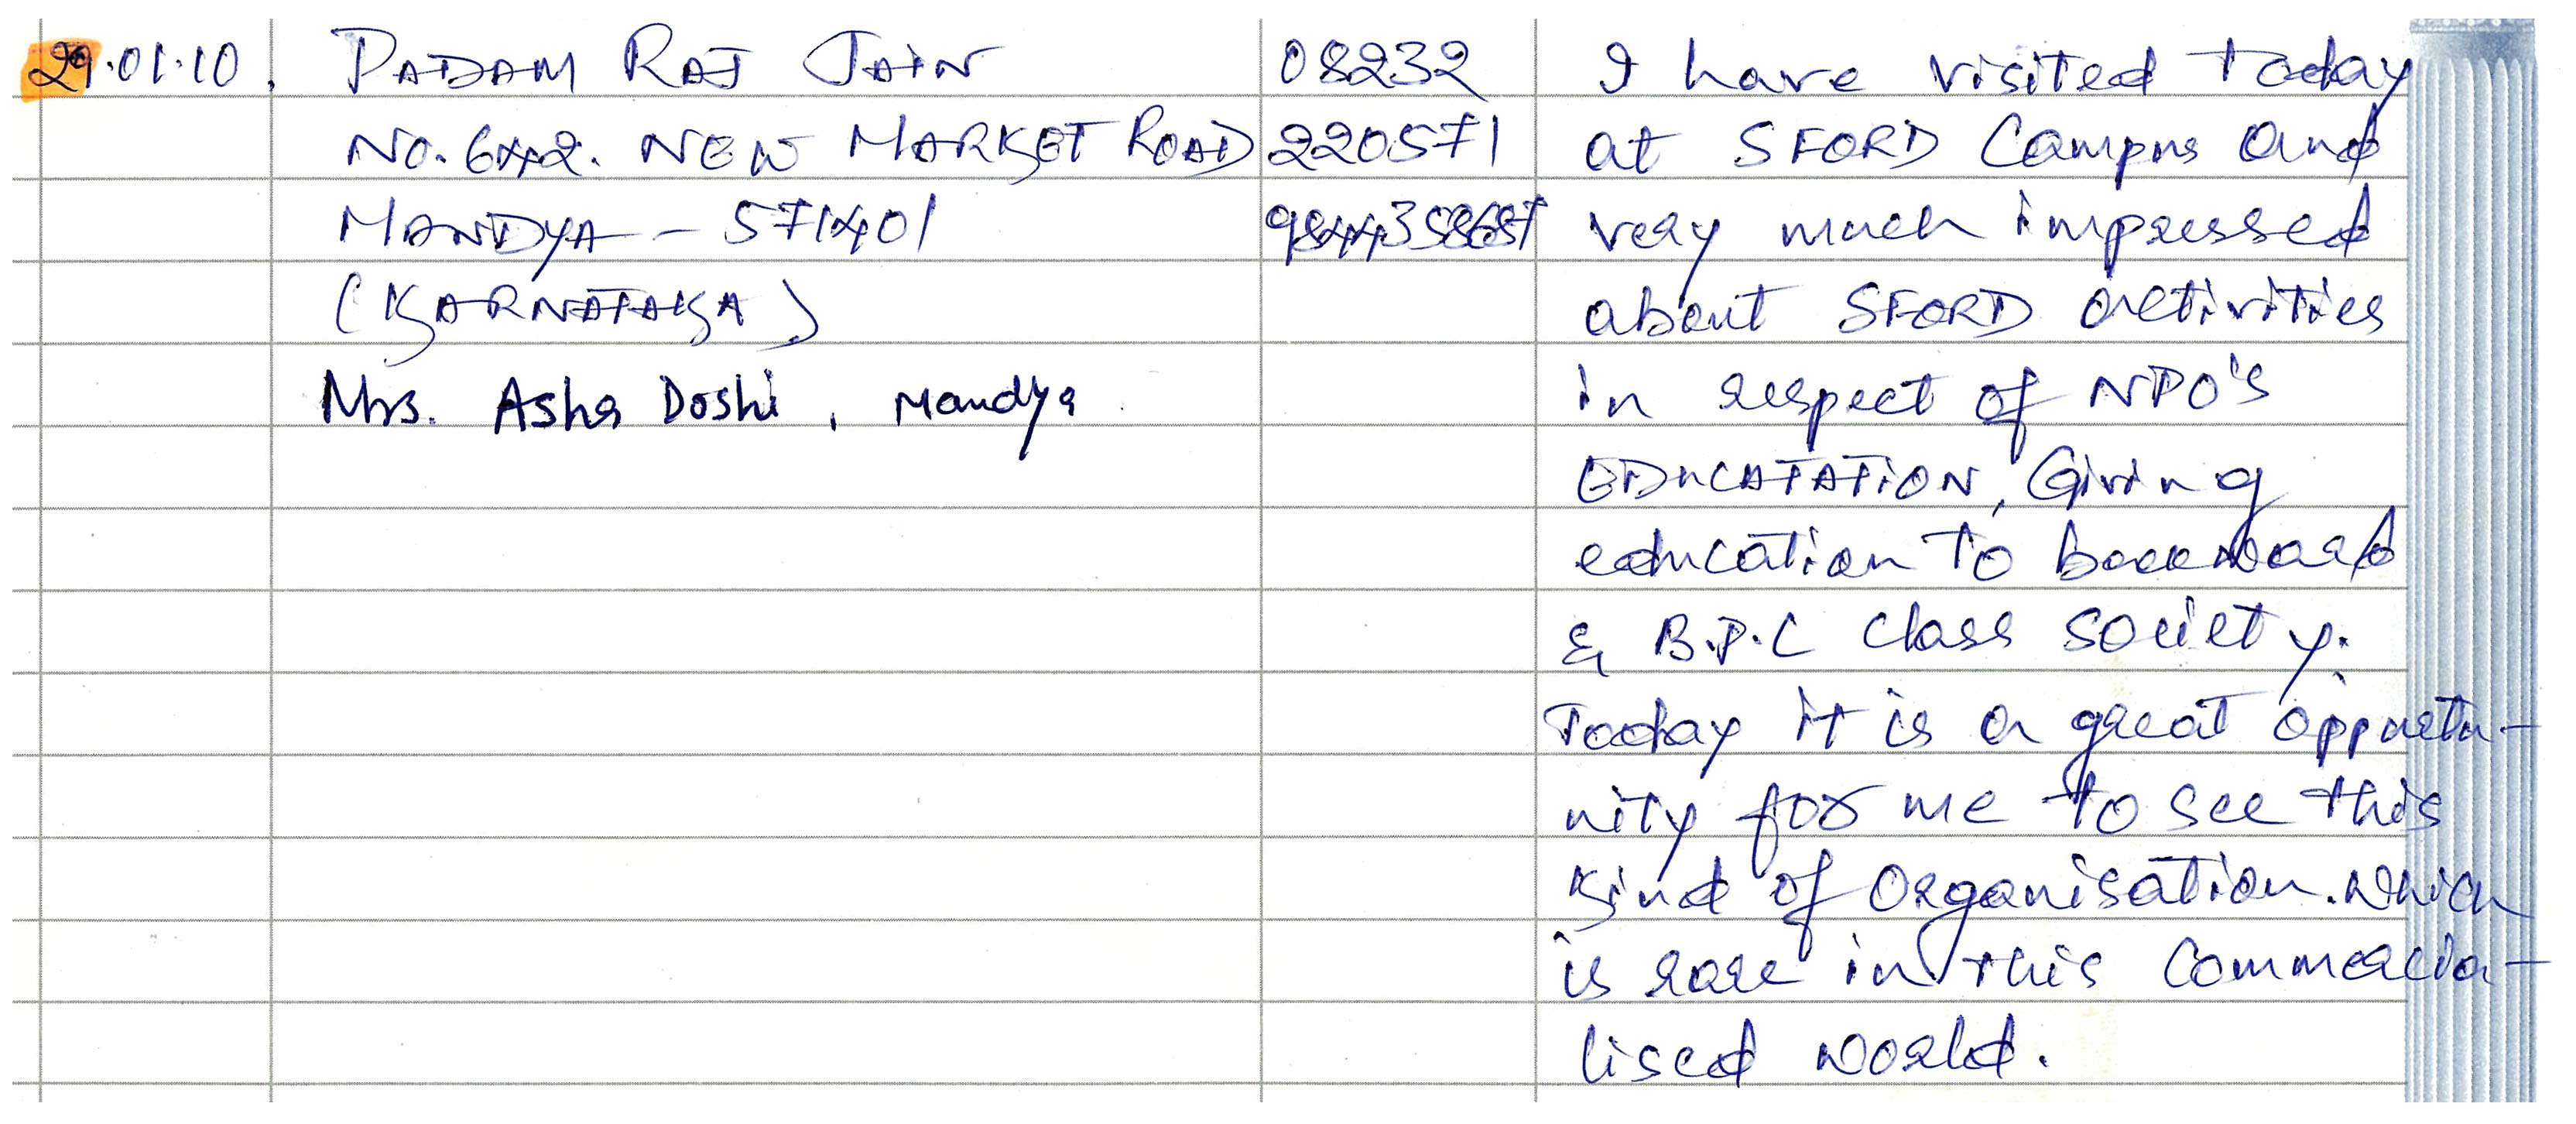 29.01.10. PADAM RAJ JAIN
NO. 642. NEW MARKET ROAD
MANDYA - 571401
(KARNATAKA)
Mrs. Asha Doshi, Mandya
08232
220571
I have visited Today
at SFORD Campus and
very much impressed
about SFORD activities
in respect of NPO's
EDUCATATION, Giving
education To backward
& B.P.L class society.
Today it is a great opportu-
nity for me to see this
kind of Organisation. Which
is rare in this Commercia-
lised World.